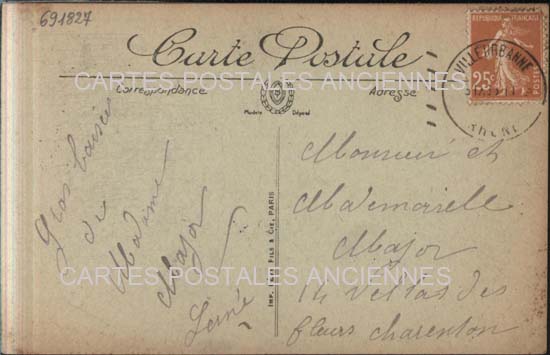 691827
Carte Postale
CARTES POSTALES ANCIENNES
Correspondance
Adresse
Modèle Déposé
RÉPUBLIQUE FRANÇAISE
25c
POSTES
VILLEURBANNE
RHONE
Gros baisers
de
Madame
Major
IMP. FILS & CIE, PARIS
Monsieur et
Mademoiselle
Major
14 Villas des
fleurs charenton
CARTES POSTALES ANCIENNES